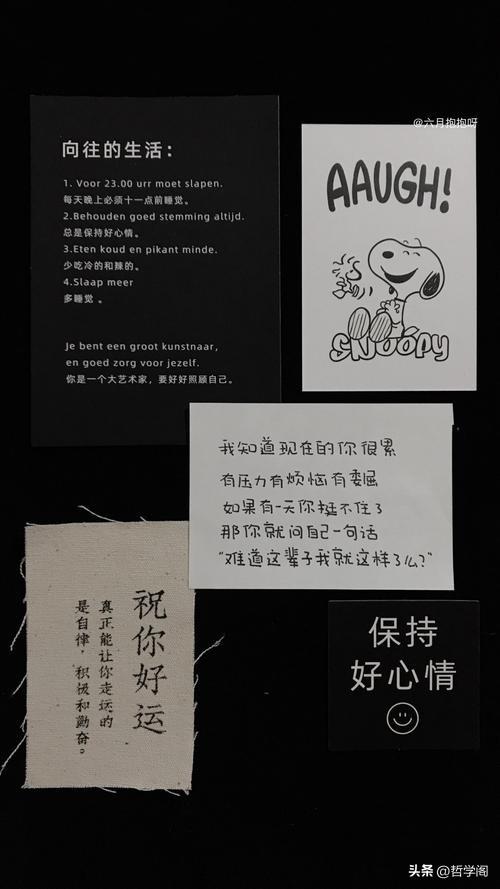 向往的生活：
1. Voor 23.00 urr moet slapen.
每天晚上必须十一点前睡觉。
2.Behouden goed stemming altijd.
总是保持好心情。
3.Eten koud en pikant minde.
少吃冷的和辣的。
4.Slaap meer
多睡觉 。
Je bent een groot kunstnaar,
en goed zorg voor jezelf.
你是一个大艺术家，要好好照顾自己。
@六月抱抱呀
AAUGH!
SNOOPY
我知道现在的你很累
有压力有烦恼有委屈
如果有一天你挺不住了
那你就问自己一句话
“难道这辈子我就这样了么？”
祝你好运
真正能让你走运的
是自律，积极和勤奋。
保持
好心情
头条 @哲学阁